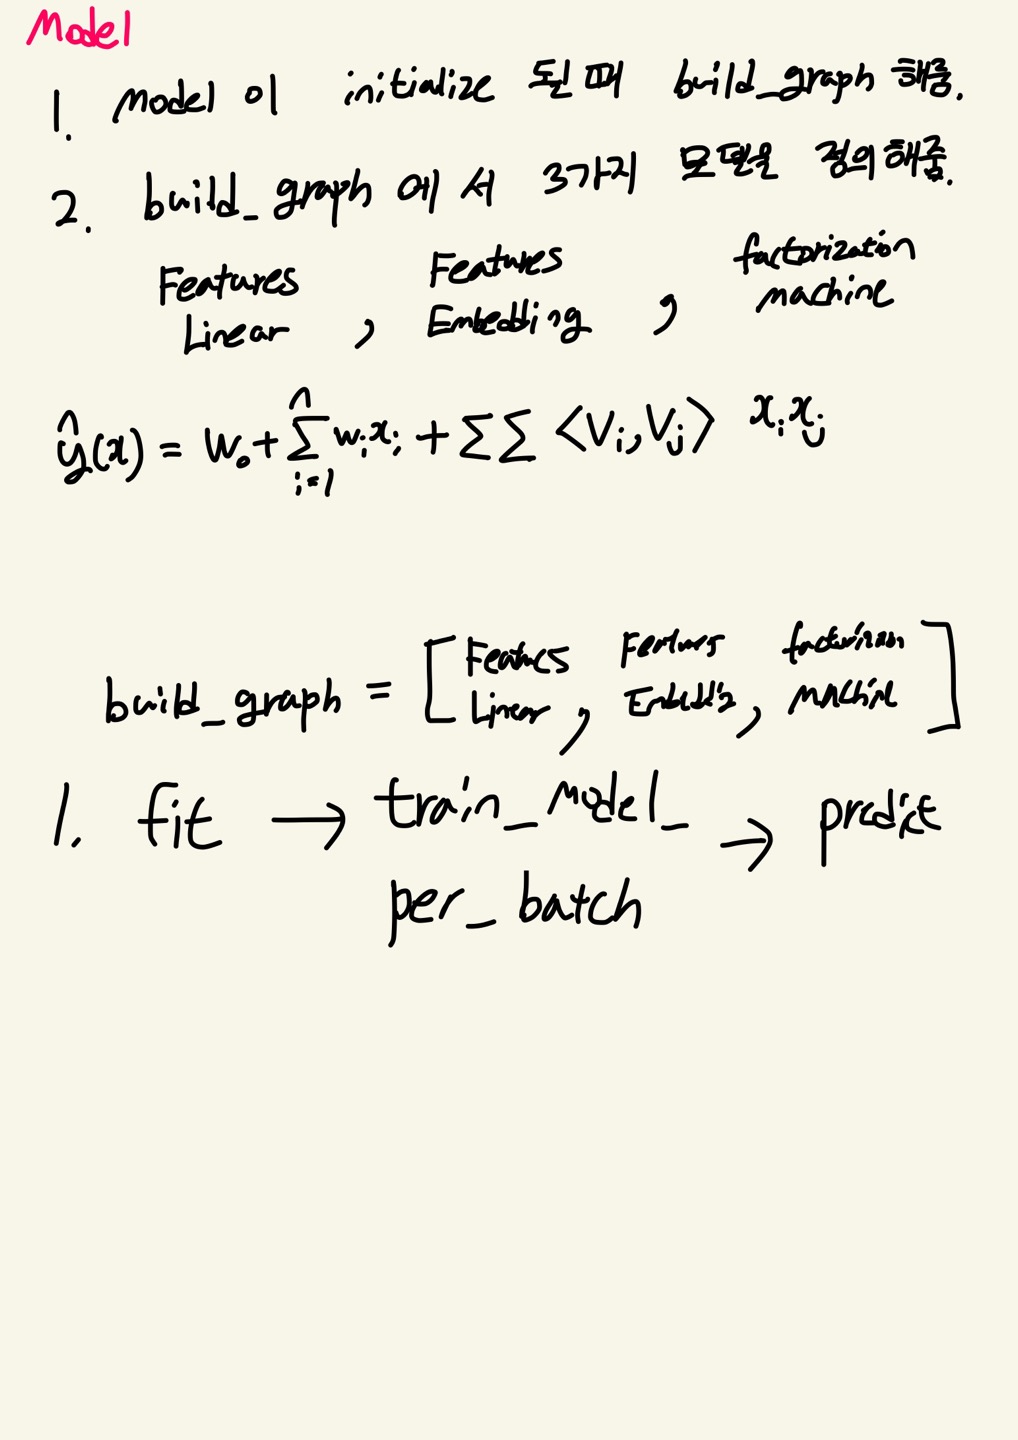 Model
1. Model 이 initialize 된때 build_graph 해줌.
2. build_graph 에서 3가지 모델을 정의해줌.
Features Linear , Features Embedding , factorization machine
ŷ(x) = W₀ + Σⁿᵢ₌₁ wᵢxᵢ + ΣΣ <Vᵢ, Vⱼ> xᵢxⱼ
build_graph = [Features Linear , Features , machine]
1. fit → train_model_per_batch → predict